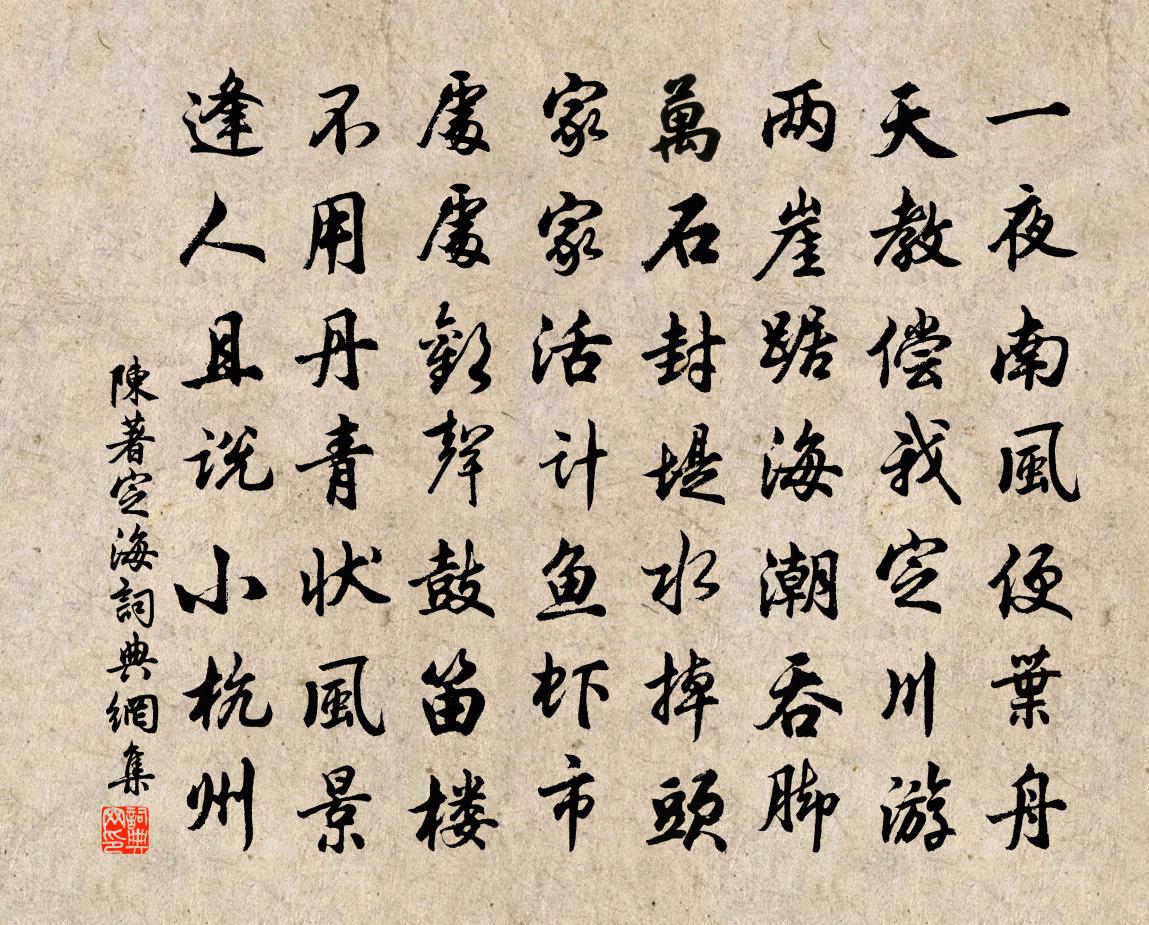 一夜南風便葉舟
天教偿我定川游
两崖踞海潮吞脚
萬石封堤水掉頭
家家活計鱼虾市
處處歡聲鼓笛楼
不用丹青状風景
逢人且説小杭州
陳著定海詞典網集
詞典網印